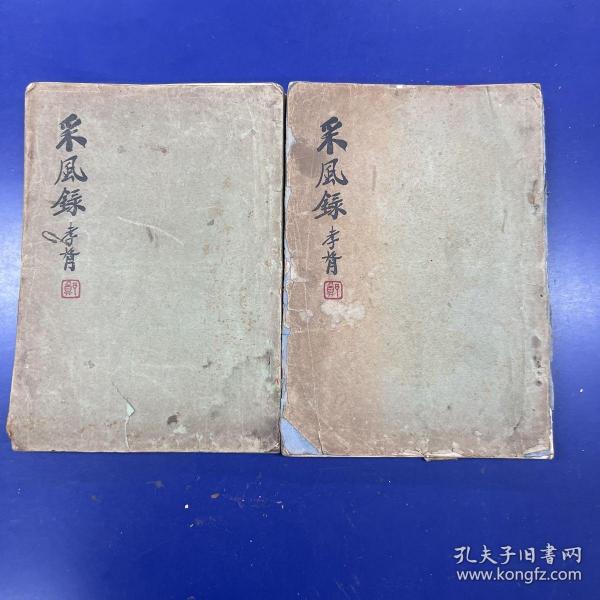 采風錄
孝胥
鄭
采風錄
孝胥
鄭
孔夫子旧書网
www.kongfz.com